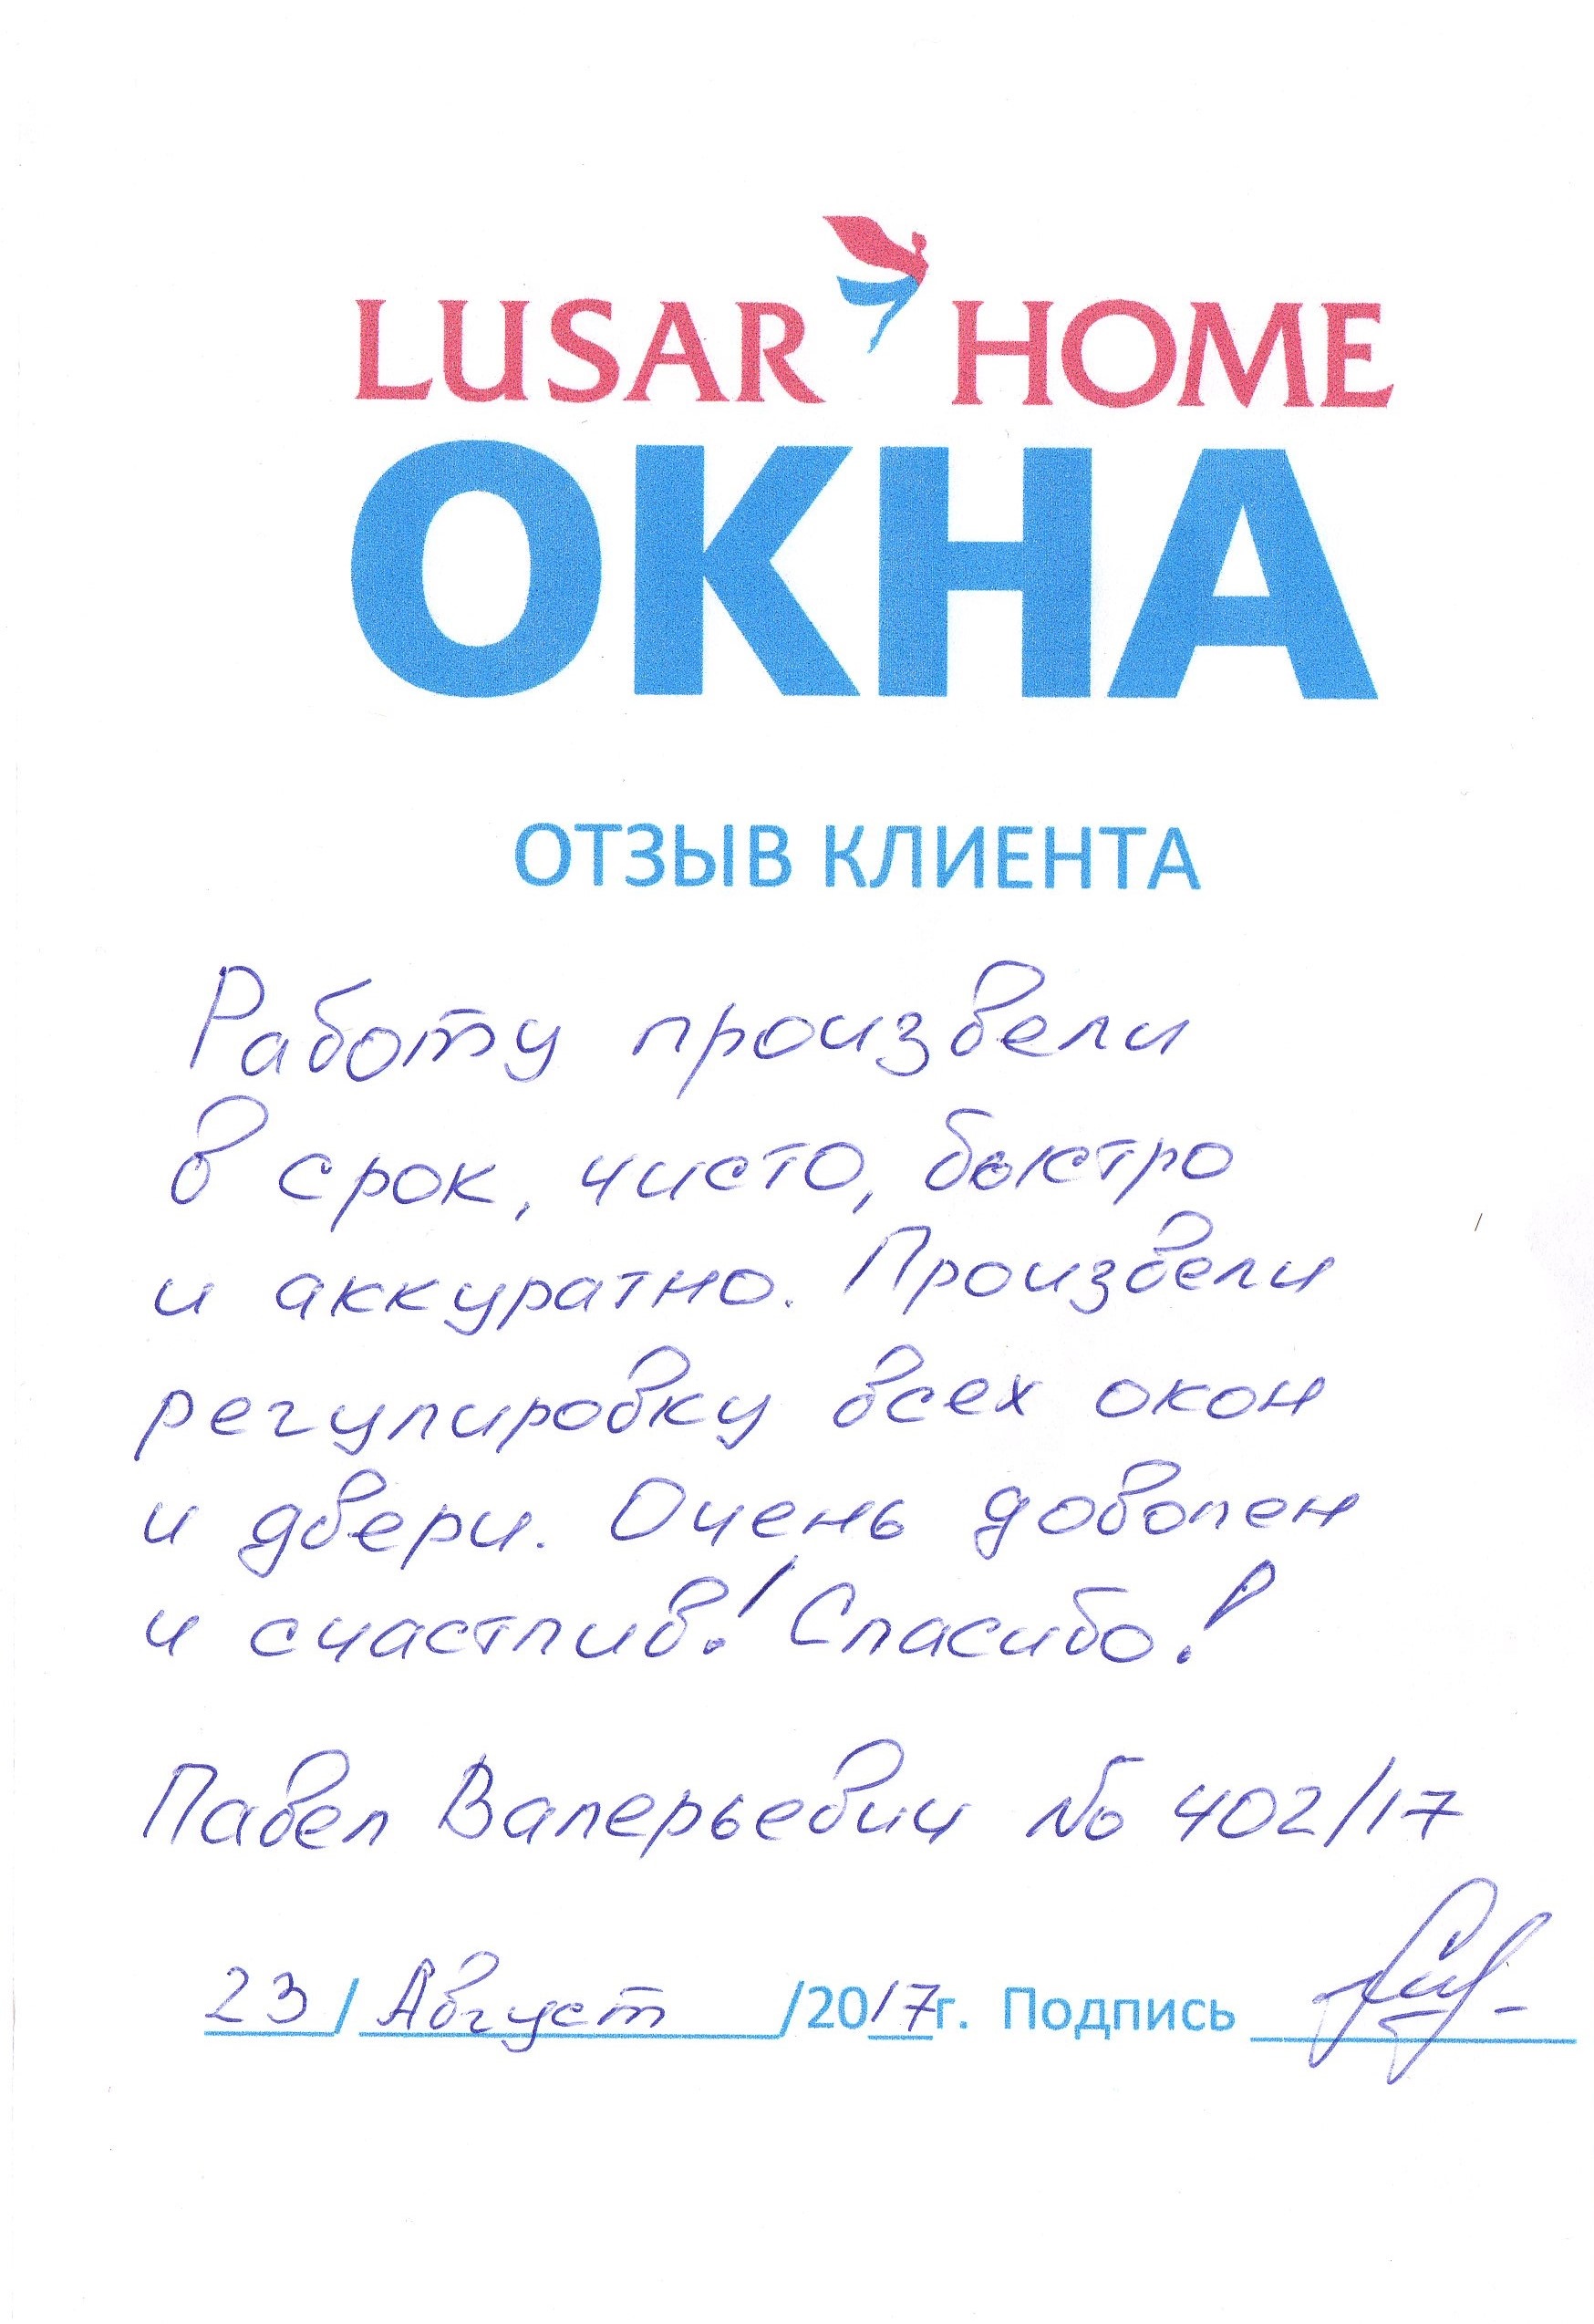 LUSAR HOME
ОКНА
ОТЗЫВ КЛИЕНТА
Работу произвели
в срок, чисто, быстро
и аккуратно. Произвели
регулировку всех окон
и двери. Очень доволен
и счастлив! Спасибо!
Павел Валерьевич № 402/17
23/Август/2017г. Подпись